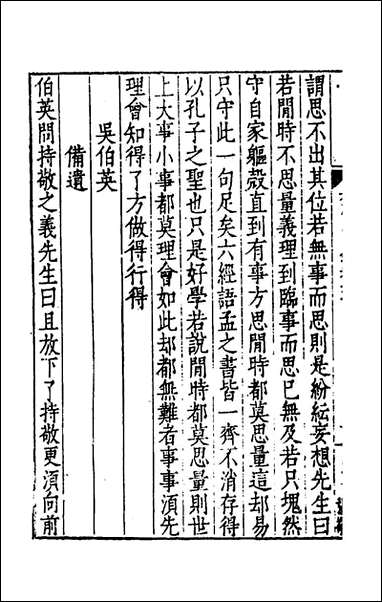 謂思不出其位若無事而思則是紛紜妄想先生曰
若閒時不思量義理到臨事而思已無及若只塊然
守自家軀殼直到有事方思閒時都莫思量這却易
只守此一句足矣六經語孟之書皆一齊不消存得
以孔子之聖也只是好學若說閒時都莫思量則世
上大事小事都莫理會如此却都無難者事事須先
理會知得了方做得行得
吳伯英
備遺
伯英問持敬之義先生曰且放下了持敬更須向前